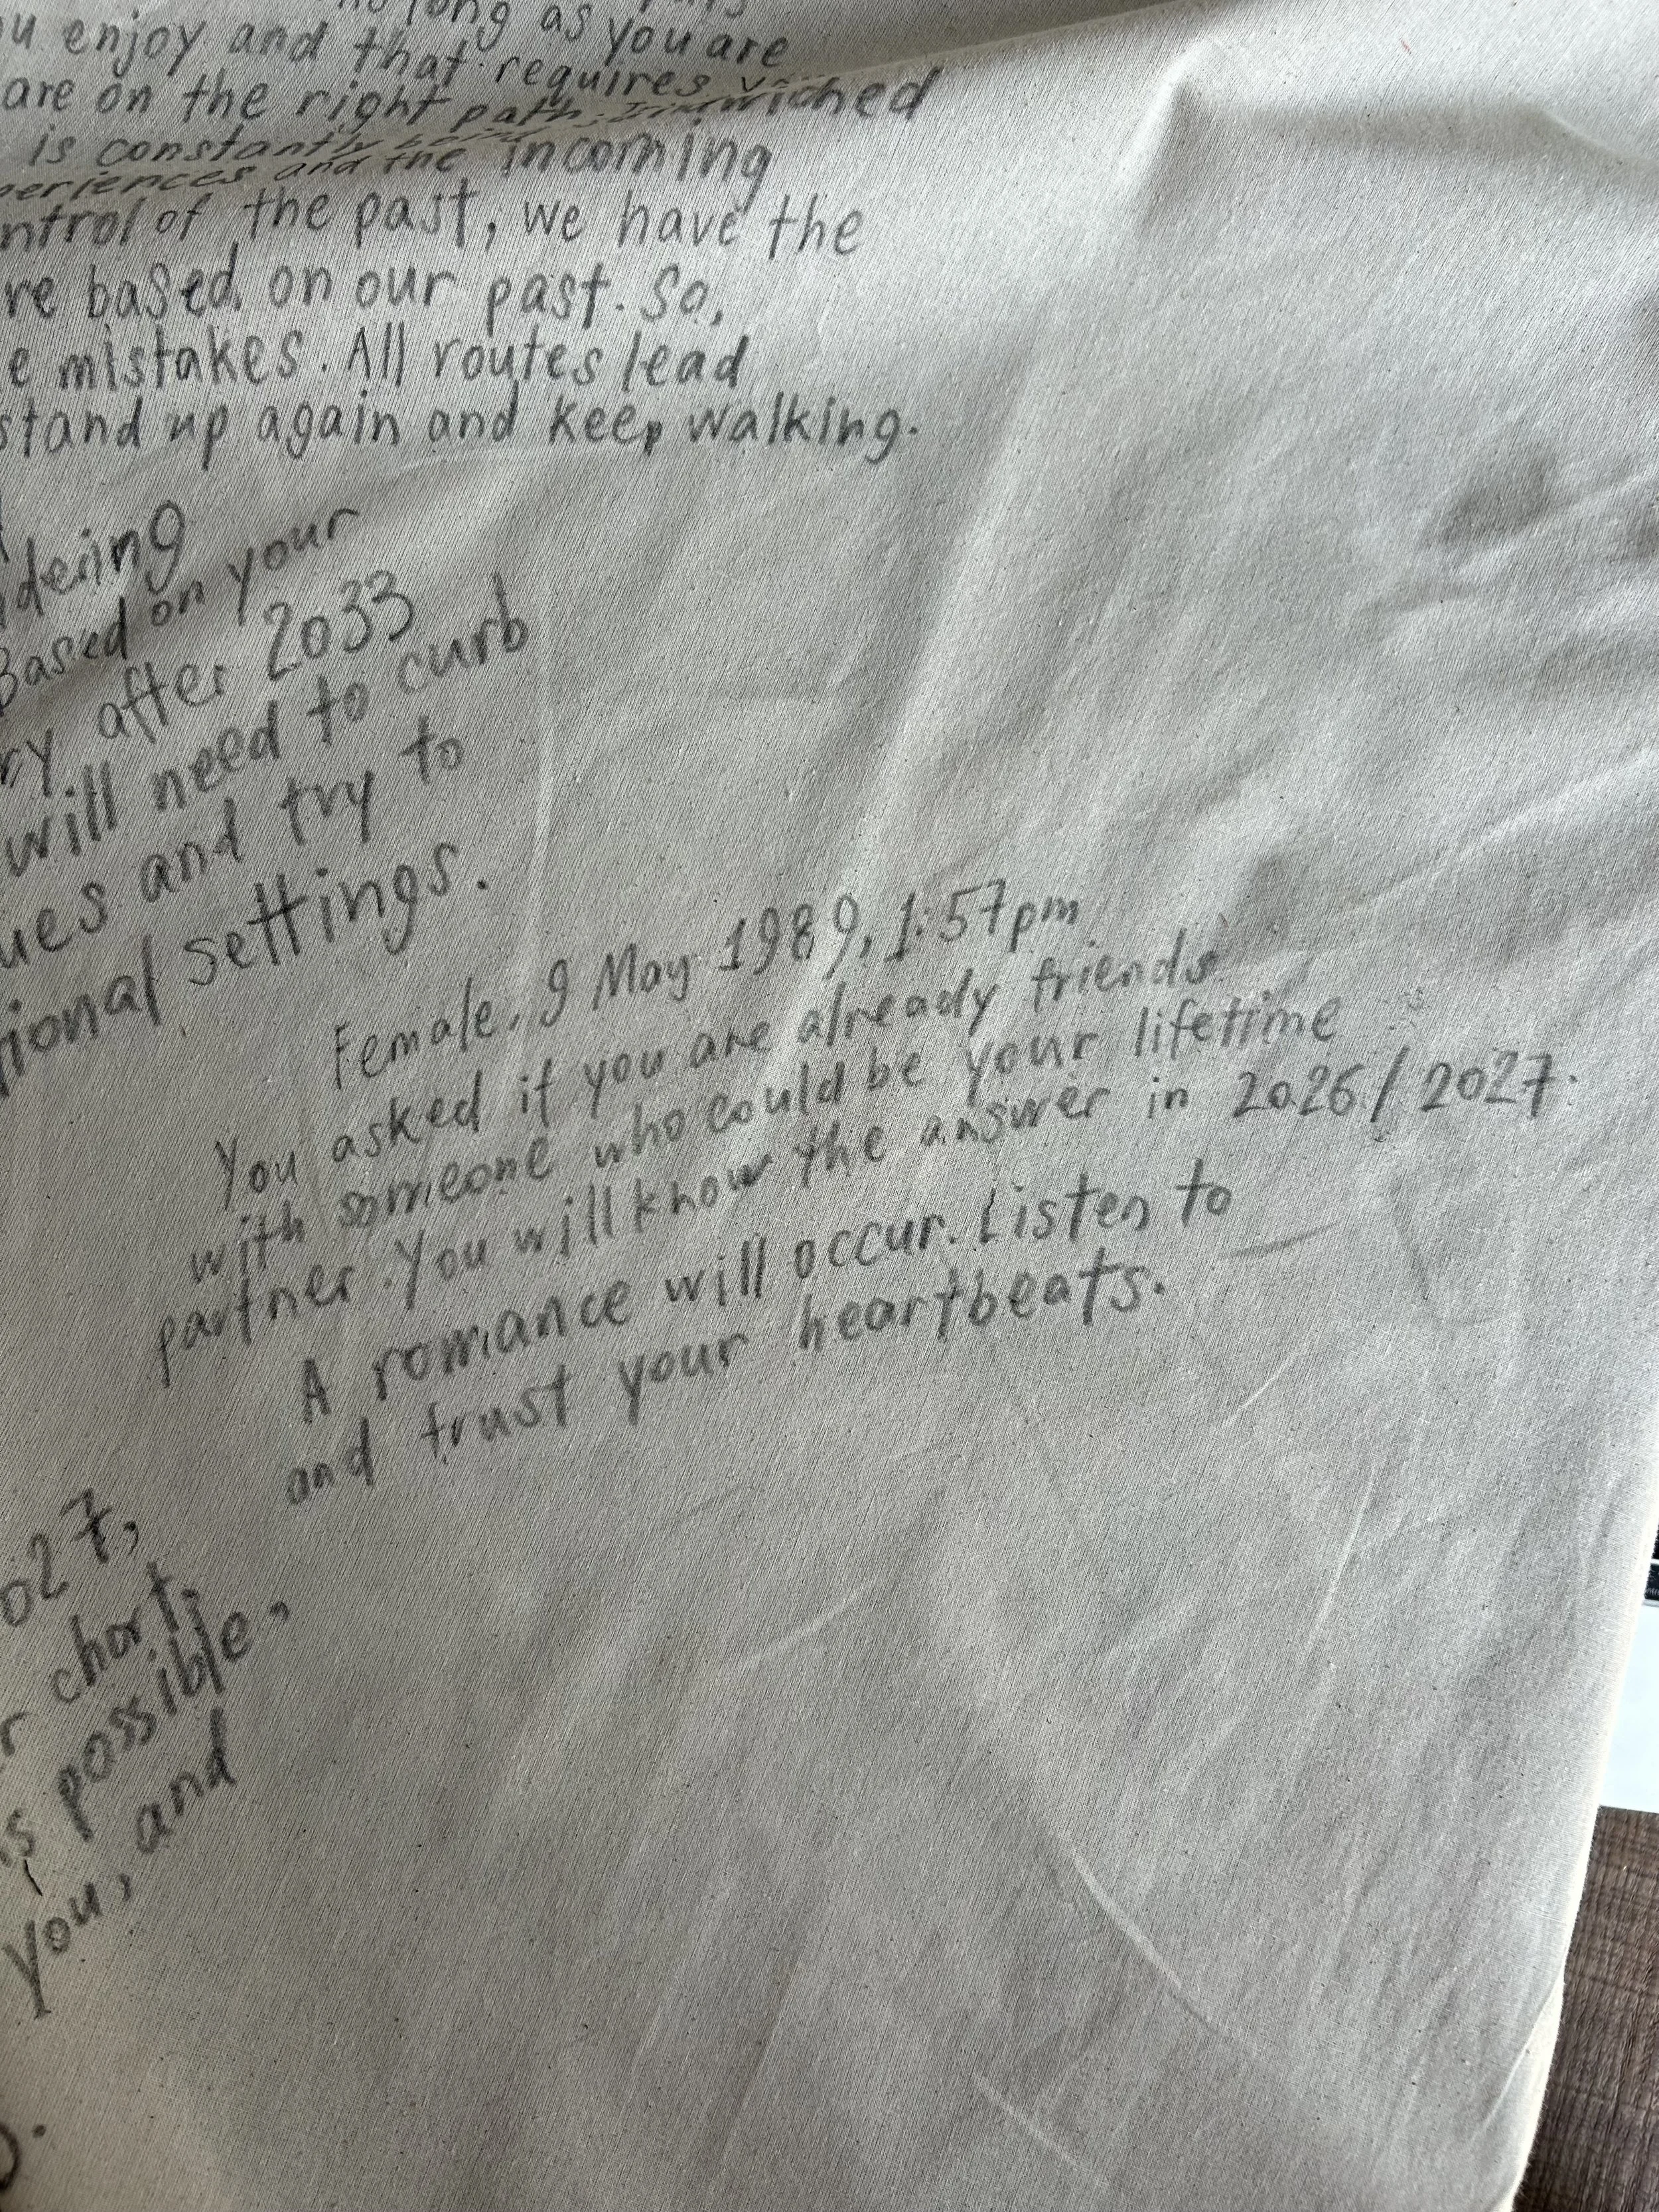 long as you are
u enjoy and that requires
are on the right path.
is constantly
periences and the incoming
ntrol of the past, we have the
re based on our past. So,
e mistakes. All routes lead
stand up again and keep walking.
dering
Based on your
ry after 2033
will need to curb
ues and try to
ional settings.
Female, 9 May 1989, 1:57pm
You asked if you are already friends
with someone who could be your lifetime
partner. You will know the answer in 2026/2027.
A romance will occur. Listen to
and trust your heartbeats.
027,
r chart,
is possible,
you, and